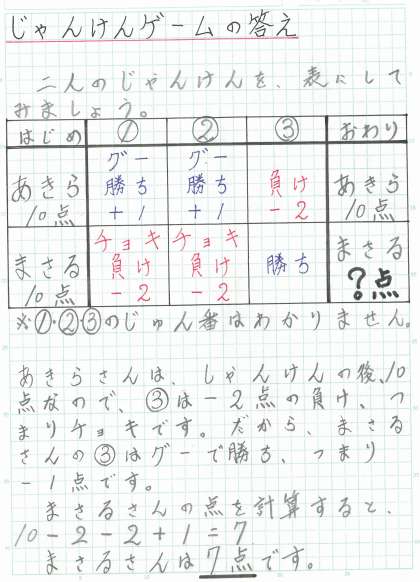 じゃんけんゲームの答え
二人のじゃんけんを、表にして
みましょう。
はじめ ① ② ③ おわり
あきら 10点 グー 勝ち +1 グー 勝ち +1 負け -2 あきら 10点
まさる 10点 チョキ 負け -2 チョキ 負け -2 勝ち まさる ?点
※①・②・③のじゅん番はわかりません。
あきらさんは、じゃんけんの後、10
点なので、③は-2点の負け、つ
まりチョキです。だから、まさる
さんの③はグーで勝ち、つまり
-1点です。
まさるさんの点を計算すると、
10-2-2+1=7
まさるさんは7点です。